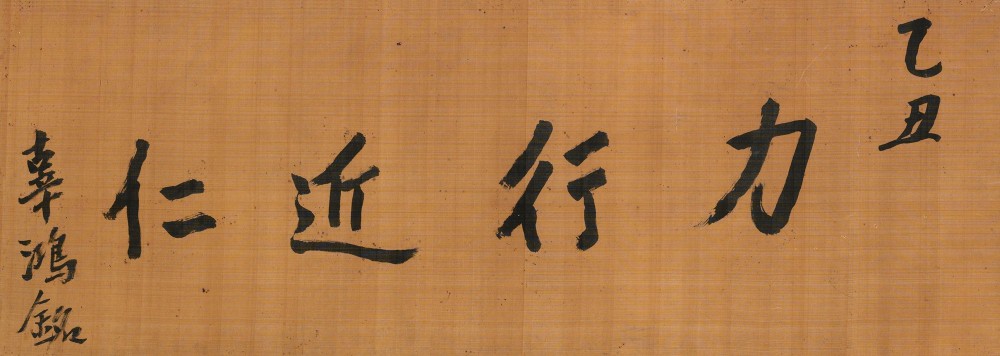 乙丑
力行近仁
辜鴻銘